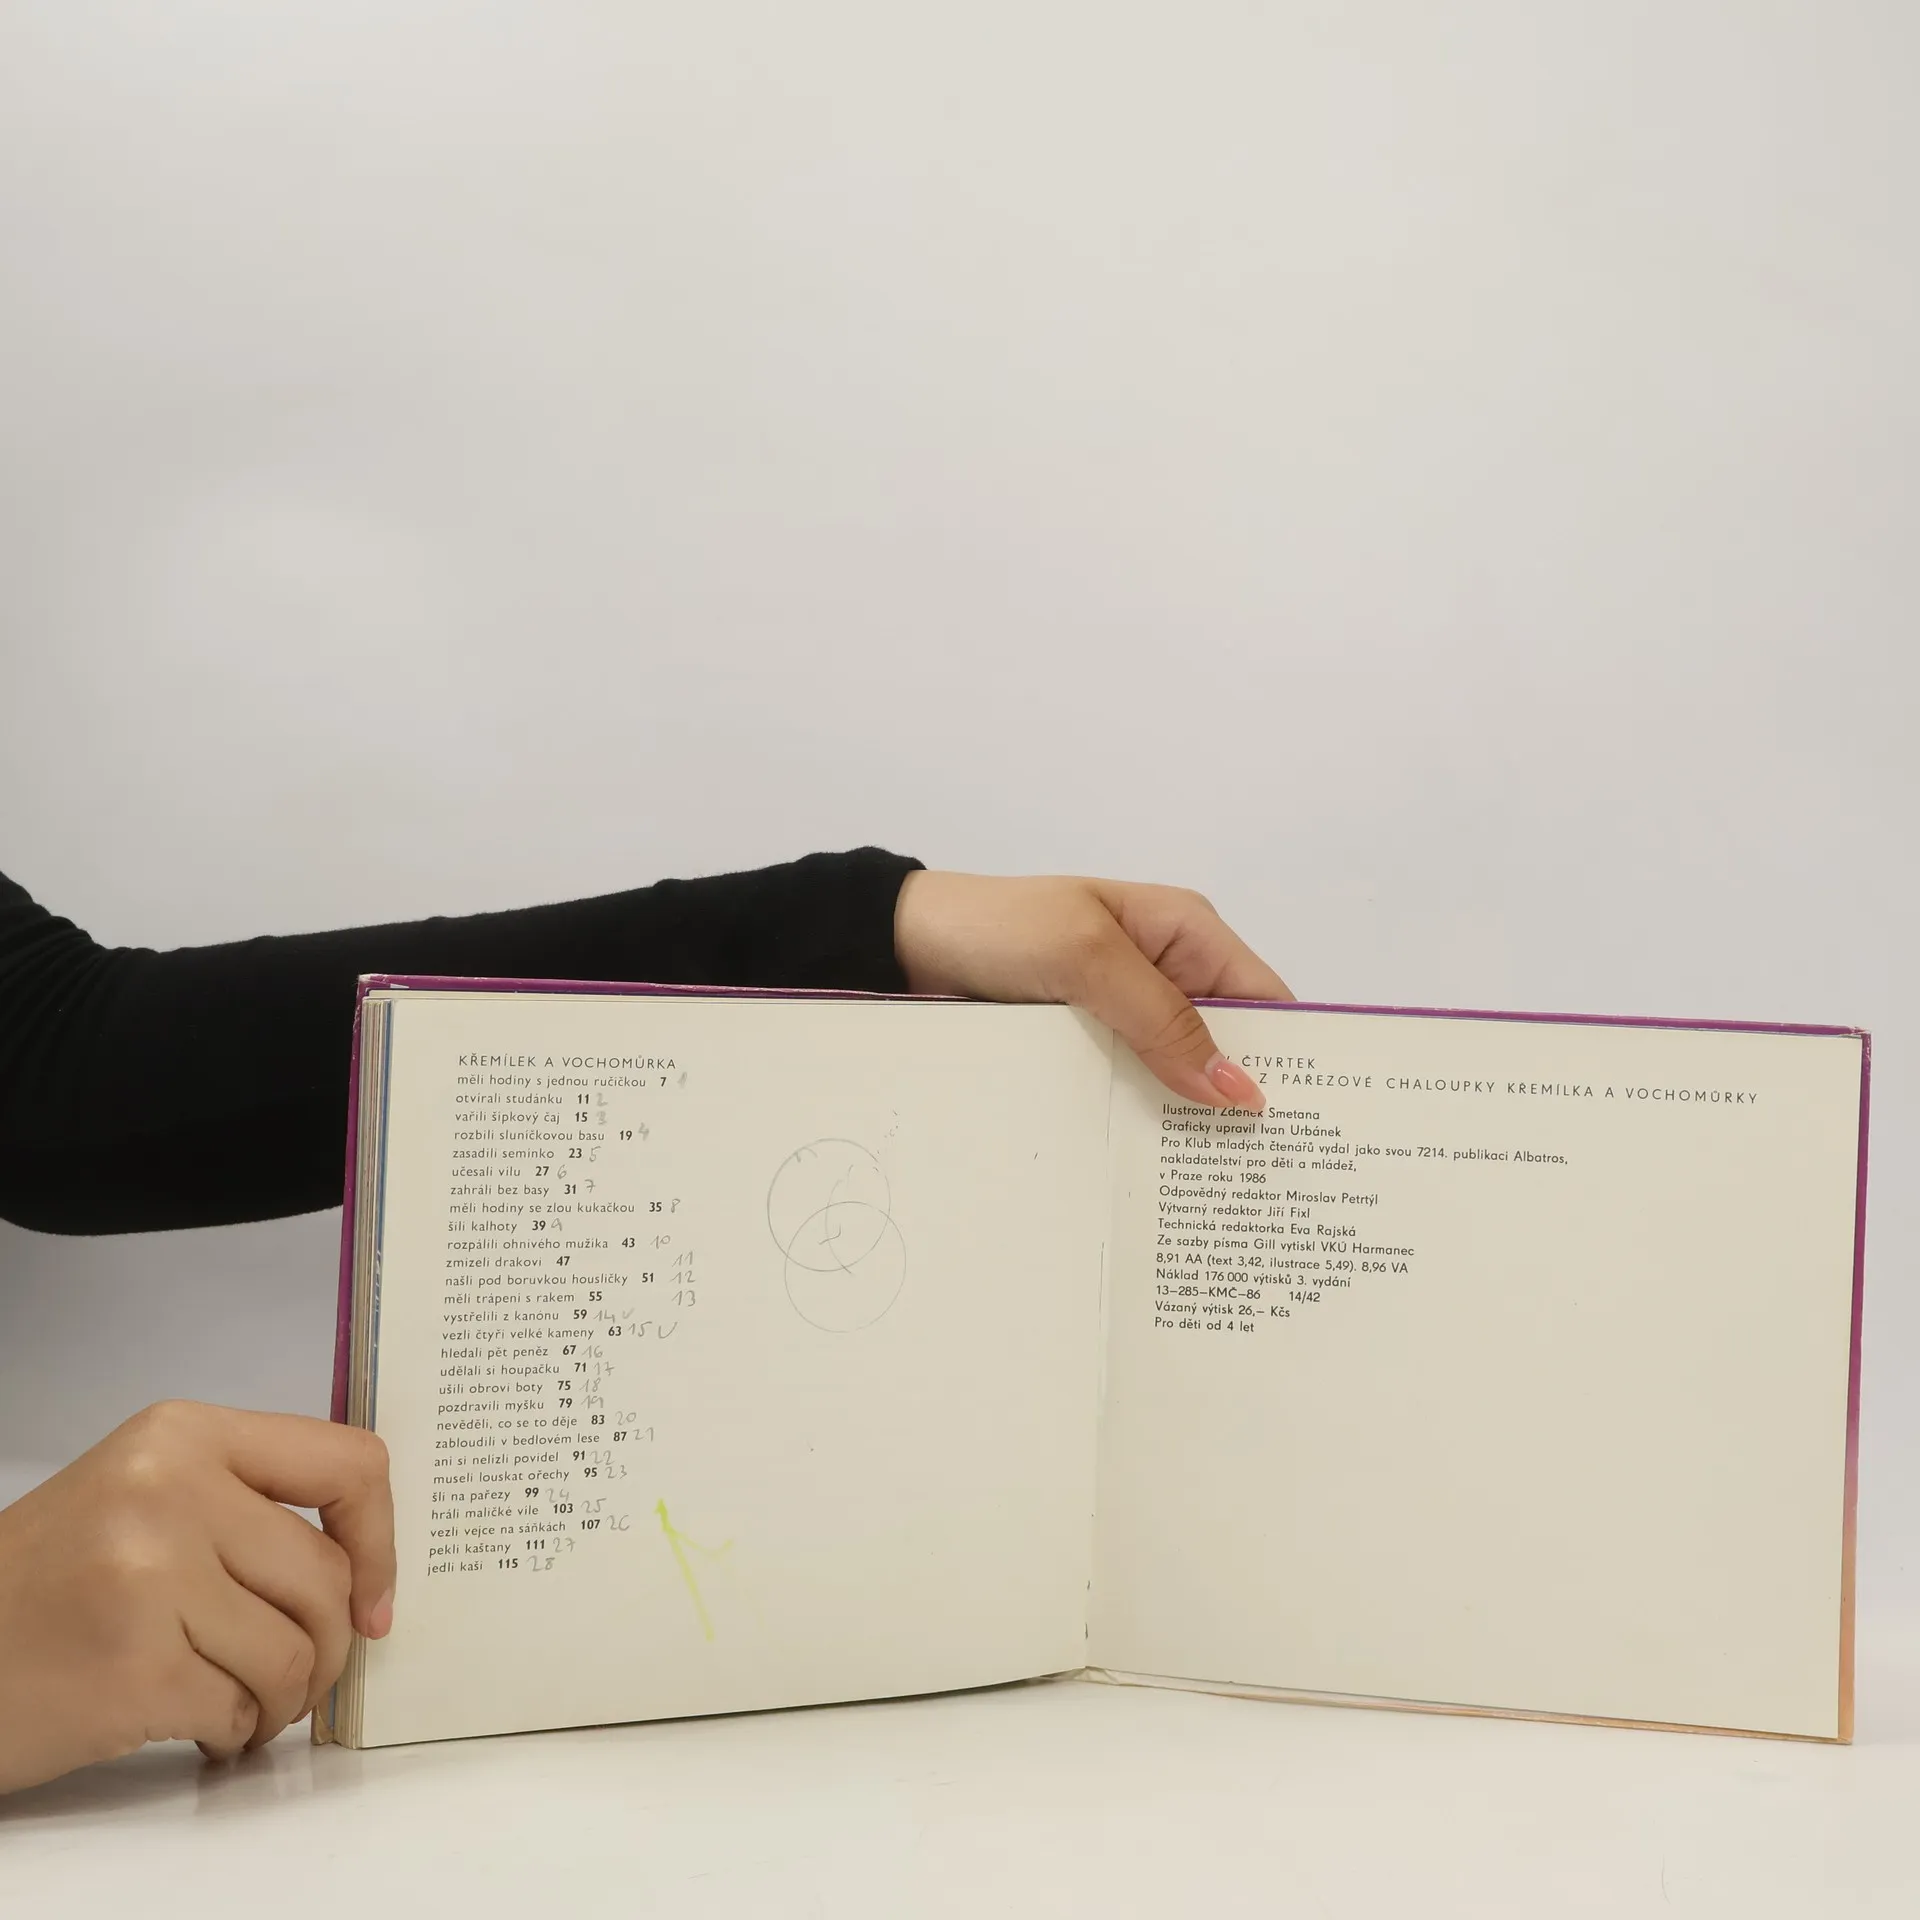 KŘEMÍLEK A VOCHOMŮRKA
měli hodiny s jednou ručičkou 7 1
otvírali studánku 11 2
vařili šípkový čaj 15 3
rozbili sluníčkovou basu 19 4
zasadili semínko 23 5
učesali vílu 27 6
zahráli bez basy 31 7
měli hodiny se zlou kukačkou 35 8
šili kalhoty 39 9
rozpálili ohnivého mužíka 43 10
zmizeli drakovi 47 11
našli pod borůvkou housličky 51 12
měli trápení s rakem 55 13
vystřelili z kanónu 59 14 v
vezli čtyři velké kameny 63 15 v
hledali pět peněz 67 16
udělali si houpačku 71 17
ušili obrovi boty 75 18
pozdravili myšku 79 19
nevěděli, co se to děje 83 20
zabloudili v bedlovém lese 87 21
ani si nelízli povidel 91 22
museli louskat ořechy 95 23
šli na pařezy 99 24
hráli maličké víle 103 25
vezli vejce na sáňkách 107 26
pekli kaštany 111 27
jedli kaši 115 28
ČTVRTEK
Z PAŘEZOVÉ CHALOUPKY KŘEMÍLKA A VOCHOMŮRKY
Ilustroval Zdeněk Smetana
Graficky upravil Ivan Urbánek
Pro Klub mladých čtenářů vydal jako svou 7214. publikaci Albatros,
nakladatelství pro děti a mládež,
v Praze roku 1986
Odpovědný redaktor Miroslav Petrtýl
Výtvarný redaktor Jiří Fixl
Technická redaktorka Eva Rajská
Ze sazby písma Gill vytiskl VKÚ Harmanec
8,91 AA (text 3,42, ilustrace 5,49). 8,96 VA
Náklad 176 000 výtisků 3. vydání
13–285–KMČ–86 14/42
Vázaný výtisk 26,– Kčs
Pro děti od 4 let